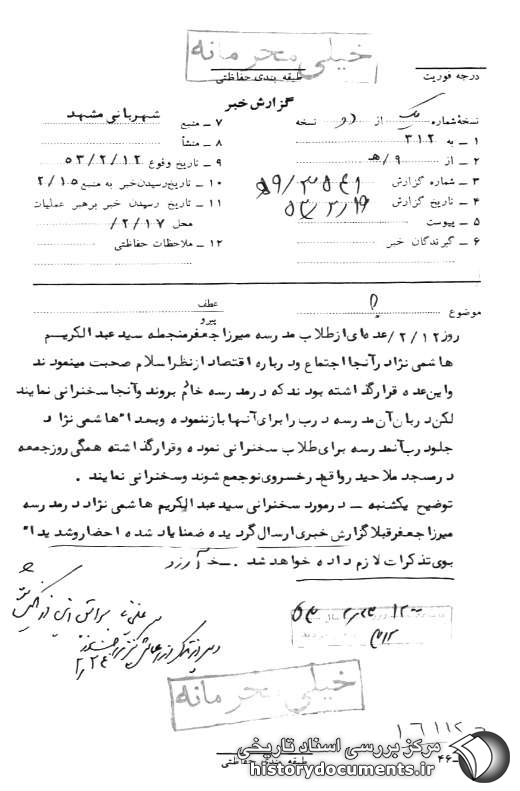 خیلی محرمانه
طبقه بندی حفاظتی
درجه فوریت
گزارش خبر
نسخه شماره یک از دو نسخه
۱ – به ۳۱۲
۲ – از ۹/هـ
۳ – شماره گزارش
۴ – تاریخ گزارش
۵ – پیوست
۶ – گیرندگان خبر
۷ – منبع شهربانی مشهد
۸ – منشأ
۹ – تاریخ وقوع ۵۳/۲/۱۲
۱۰ – تاریخ رسیدن خبر به منبع ۲/۱۵
۱۱ – تاریخ رسیدن خبر برهبر عملیات
محل ۲/۱۷/
۱۲ – ملاحظات حفاظتی
موضوع
عطف
پیرو
روز ۲/۱۲/ عده‌ای از طلاب مدرسه میرزا جعفر منجمله سید عبد الکریم
هاشمی نژاد رآنجا اجتماع ود رباره اقتصاد از نظر اسلام صحبت مینمود ند
واین عده قرارگذاشته بود ند که د رمد رسه خانم بروند وآنجا سخنرانی نمایند
لکن د ربان آن مد رسه د رب را برای آنها باز ننموده وبعدا" هاشمی نژاد
جلود رب آنمد رسه برای طلاب سخنرانی نموده وقرارگذاشته همگی روز جمعه
د رمسجد ملاحید رواقع د رخسروی نوجمع شوند وسخنرانی نمایند .
توضیح یکشنبه – د رمورد سخنرانی سید عبد الکریم هاشمی نژاد د رمد رسه
میرزا جعفر قبلا گزارش خبری ارسال گرد یده ضمنا یاد شده احضار وشد یدا"
بوی تذکرات لازم داده خواهد شد .
۳۱۲
خیلی محرمانه
طبقه بندی حفاظتی
مرکز بررسی اسناد تاریخی
historydocuments.ir